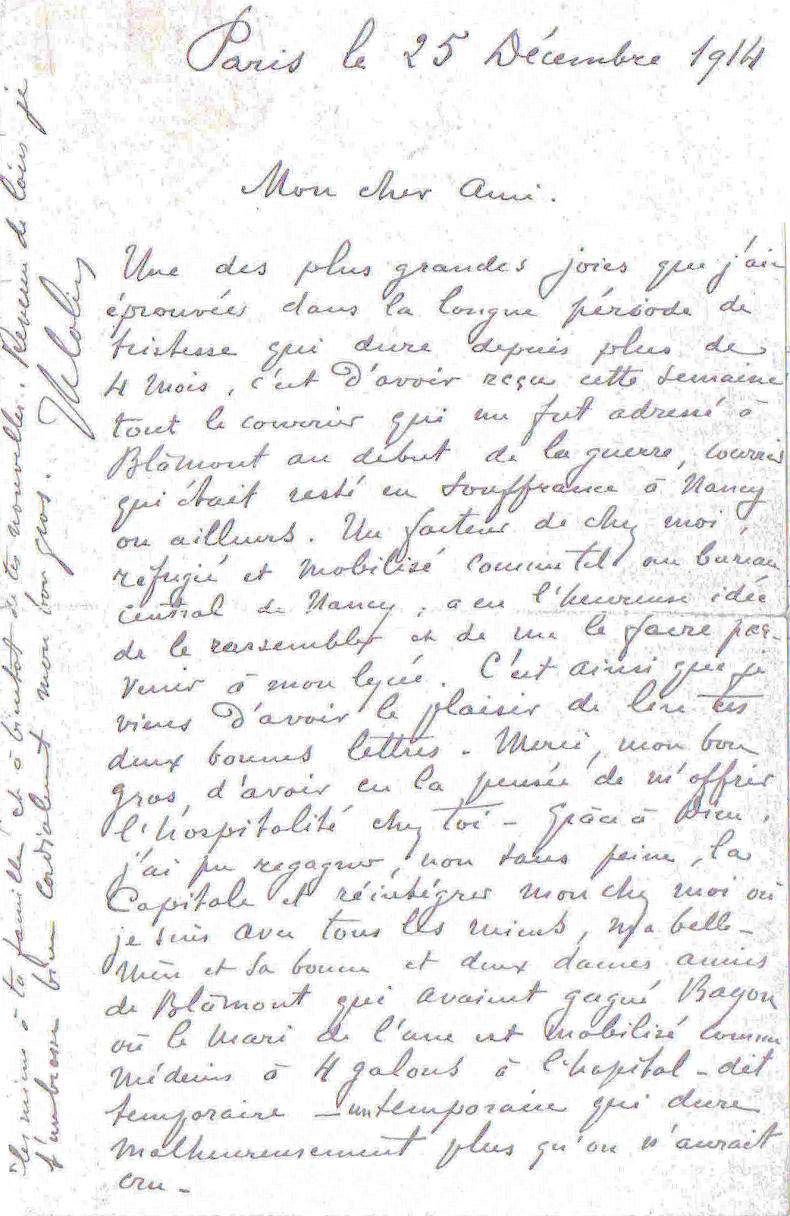 Paris le 25 Décembre 1914
Mon cher Ami.
Une des plus grandes joies que j'aie
éprouvées dans la longue période de
tristesse qui dure depuis plus de
4 mois, c'est d'avoir reçu cette semaine
tout le courrier qui me fut adressé à
Blâmont au début de la guerre, courrier
qui était resté en souffrance à Nancy
ou ailleurs. Un facteur de chez moi,
réfugié et mobilisé comme tel au bureau
central de Nancy, a eu l'heureuse idée
de le rassembler et de me le faire par-
venir à mon lycée. C'est ainsi que je
viens d'avoir le plaisir de lire tes
deux bonnes lettres. Merci, mon bon
gros, d'avoir eu la pensée de m'offrir
l'hospitalité chez toi - Grâce à Dieu,
j'ai pu regagner, non sans peine, la
Capitale et réintégrer mon chez moi où
je suis avec tous les miens, ma belle-
mère et sa bonne et deux dames amies
de Blâmont qui avaient gagné Bayon
où le mari de l'une est mobilisé comme
médecin à 4 galons à l'hôpital - dit
temporaire - un temporaire qui dure
malheureusement plus qu'on n'aurait
cru -
les miens à ta famille et à bientôt de tes nouvelles. Reviens de loin je
t'embrasse bien cordialement mon bon gros.